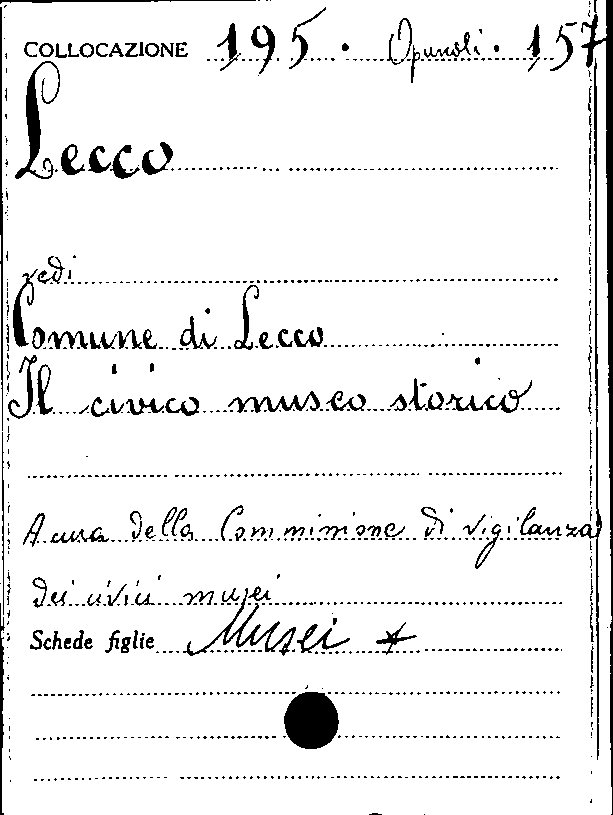 COLLOCAZIONE 195. Opuscoli. 157
Lecco
vedi
Comune di Lecco
Il civico museo storico
A cura della Commissione di vigilanza
dei civici musei
Schede figlie Musei *